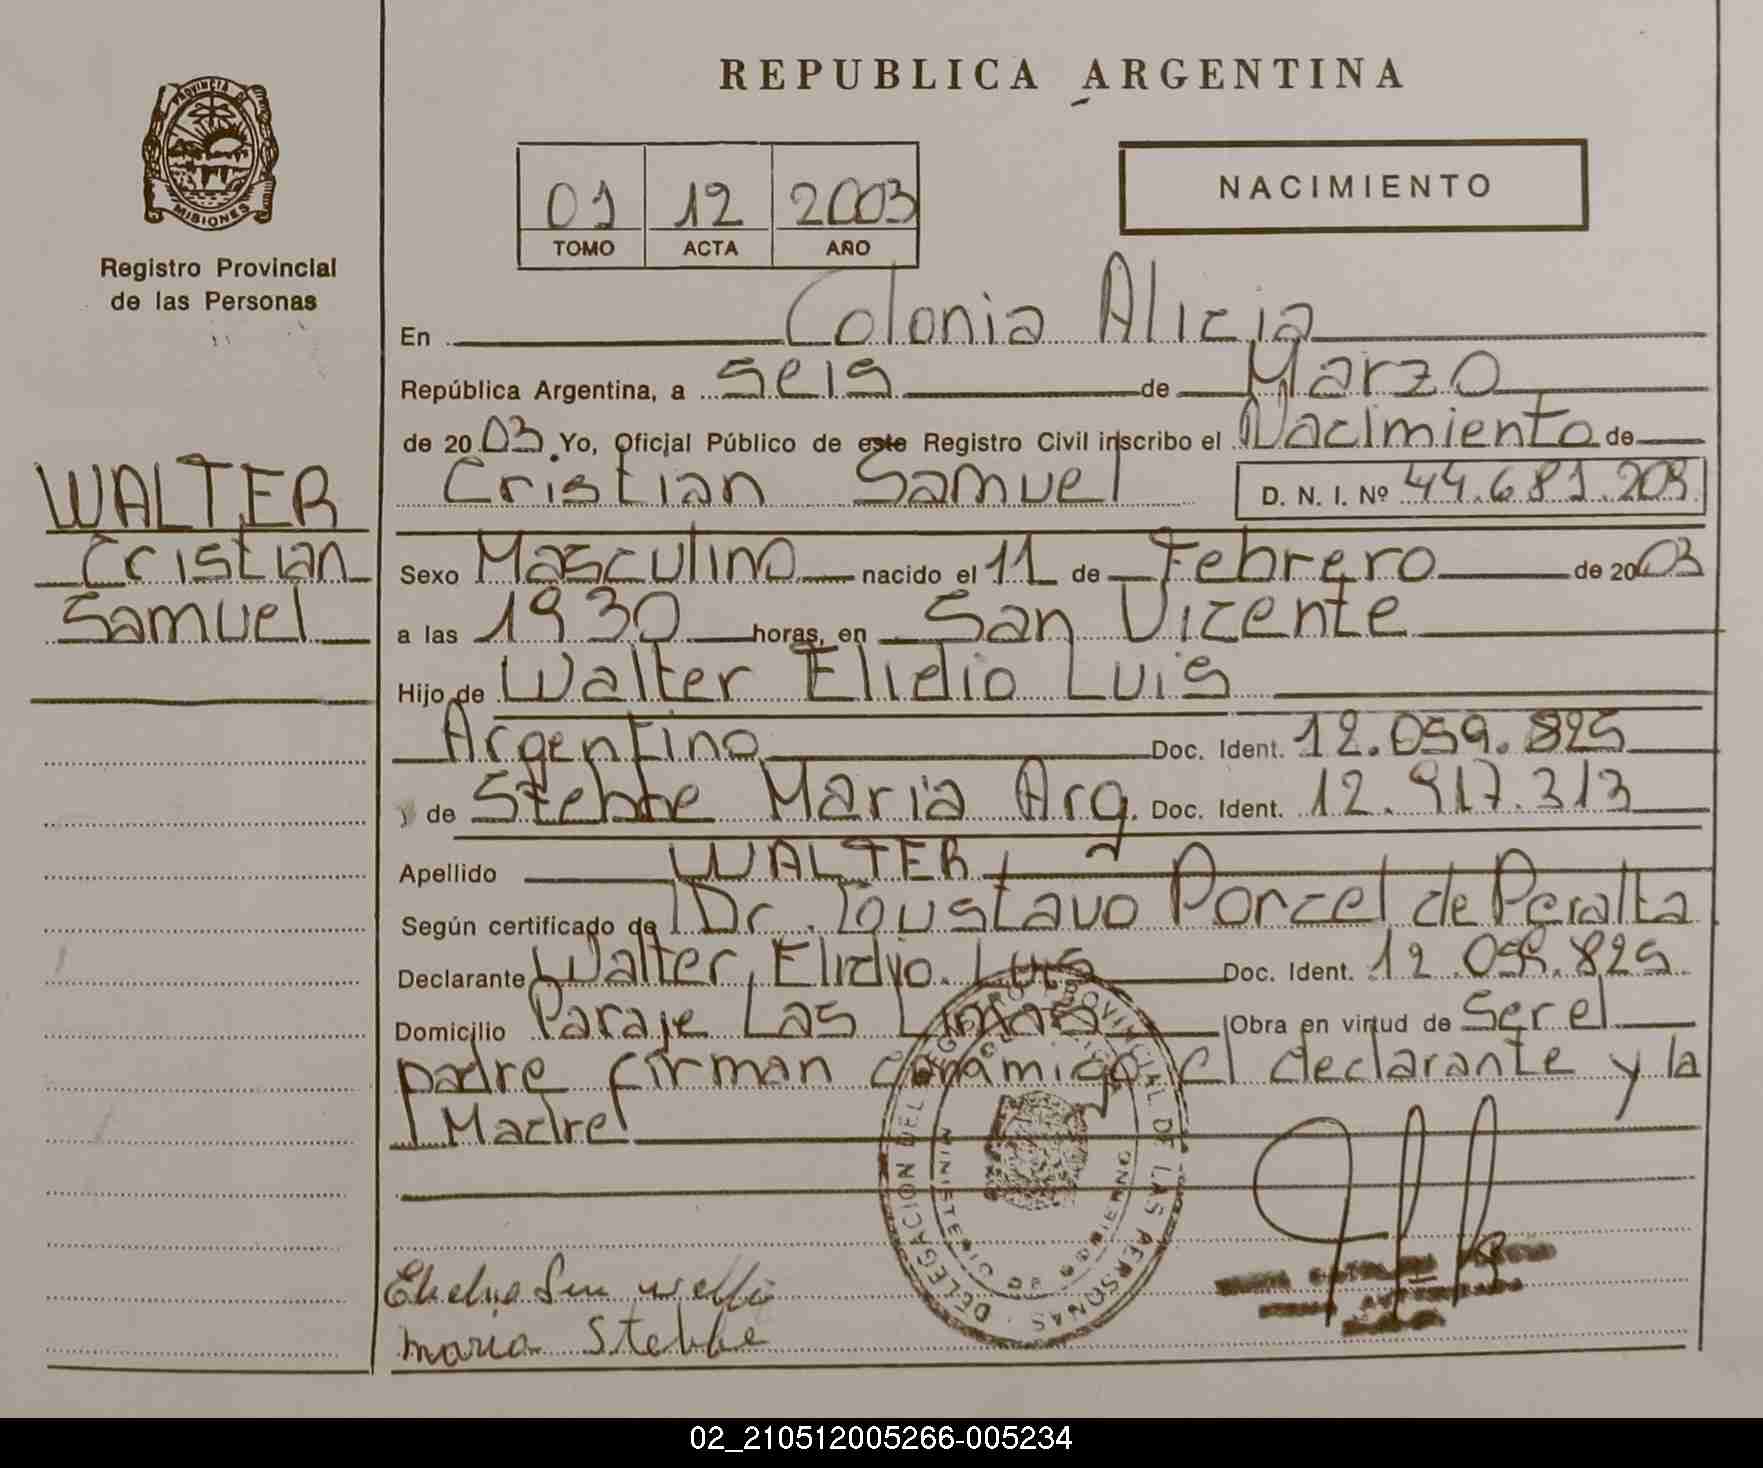 REPUBLICA ARGENTINA
PROVINCIA DE
MISIONES
Registro Provincial
de las Personas
01 12 2003
TOMO ACTA AÑO
NACIMIENTO
En Colonia Alicia
República Argentina, a seis de Marzo
de 2003. Yo, Oficial Público de este Registro Civil inscribo el Nacimiento de
Cristian Samuel D. N. I. Nº 44.681.209
WALTER
Cristian
Samuel
Sexo Masculino nacido el 11 de Febrero de 2003
a las 1930 horas, en San Vicente
Hijo de Walter Elidio Luis
Argentino Doc. Ident. 12.059.825
y de Stebbe Maria Arg. Doc. Ident. 12.917.313
Apellido WALTER
Según certificado de Dr. Gustavo Porcel de Peralta
Declarante Walter, Elidio. Luis Doc. Ident. 12.059.825
Domicilio Paraje Las Obra en virtud de Ser el
padre firman conmigo el declarante y la
Madre
DELEGACION DEL REGISTRO PROVINCIAL DE LAS PERSONAS
MINISTERIO DE GOBIERNO
maria Stebbe
02_210512005266-005234